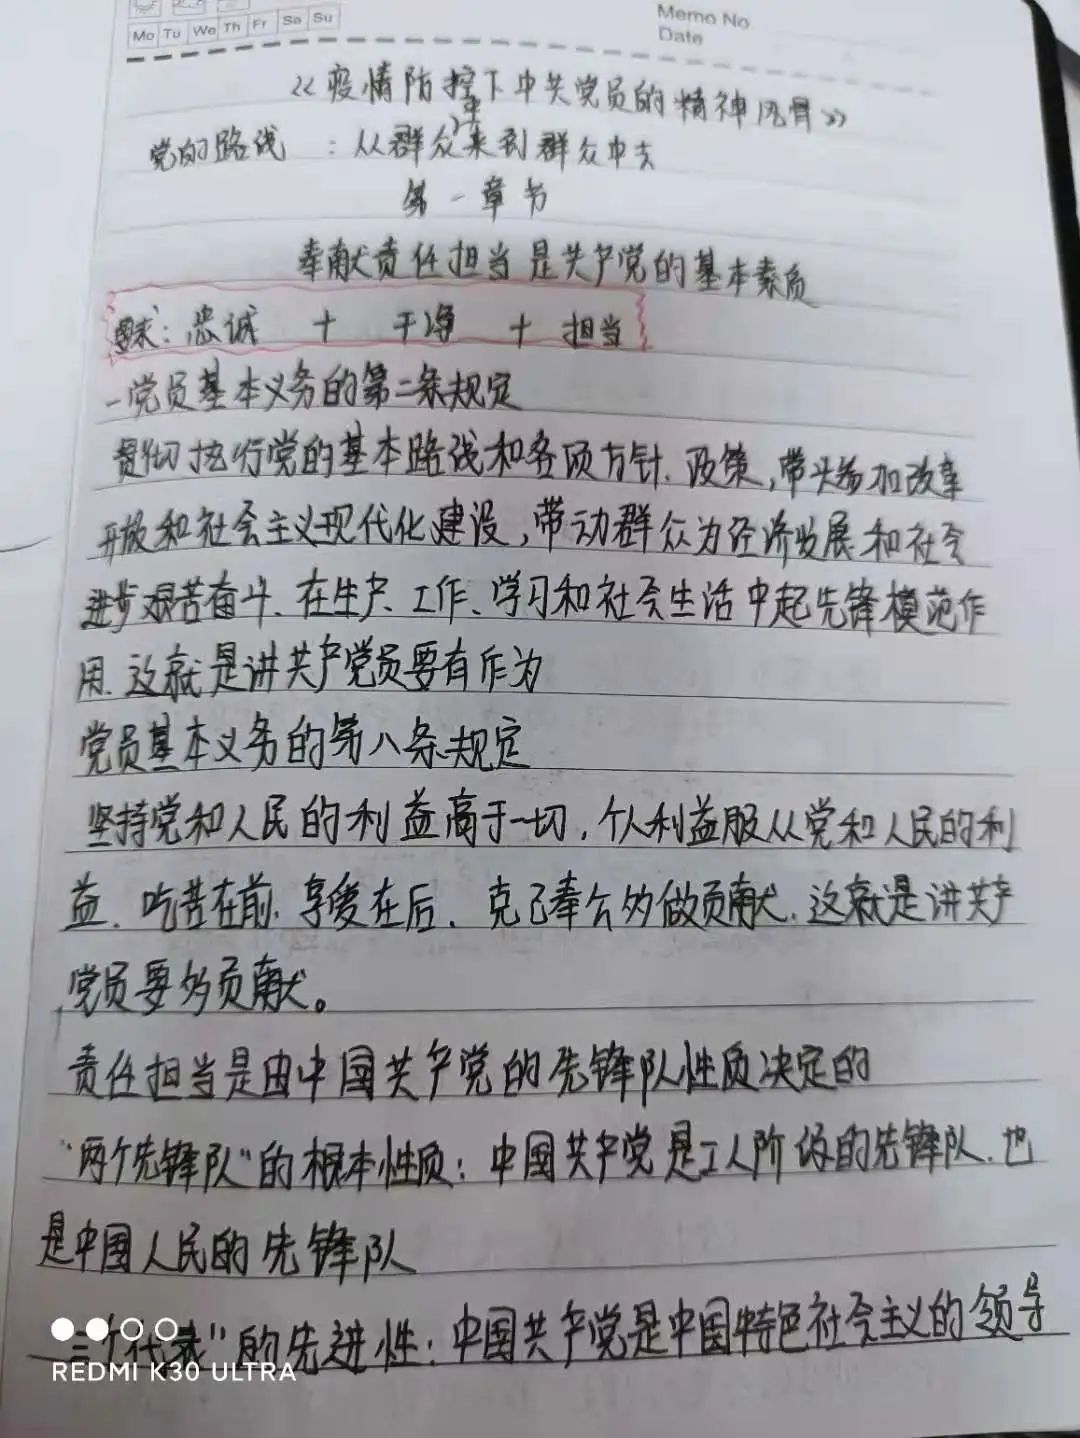 Mo Tu We Th Fr Sa Su
Memo No.
Date
《疫情防控下中共党员的精神风骨》
党的路线 : 从群众中来到群众中去
第一章节
奉献责任担当是共产党的基本素质
要求: 忠诚 + 干净 + 担当
一党员基本义务的第二条规定
贯彻执行党的基本路线和各项方针、政策,带头参加改革
开放和社会主义现代化建设,带动群众为经济发展和社会
进步艰苦奋斗、在生产、工作、学习和社会生活中起先锋模范作
用.这就是讲共产党员要有作为
党员基本义务的第八条规定
坚持党和人民的利益高于一切,个人利益服从党和人民的利
益、吃苦在前.享受在后、克己奉公多做贡献.这就是讲共产
党员要多贡献。
责任担当是由中国共产党的先锋队性质决定的
"两个先锋队"的根本性质:中国共产党是工人阶级的先锋队.也
是中国人民的先锋队
三个代表"的先进性:中国共产党是中国特色社会主义的领导
REDMI K30 ULTRA